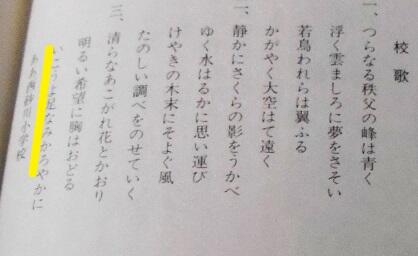 校歌
一、つらなる秩父の峰は青く
浮ぶ雲ましろに夢をさそい
若鳥われらは翼ふる
かがやく大空はて遠く
一、静かにさくらの影をうかべ
ゆく水はるかに思い運び
けやきの木末にそよぐ風
たのしい調べをのせていく
三、清らなあこがれ花とかおり
明るい希望に胸はおどる
足なみかろやかに
ああ西砂川小学校